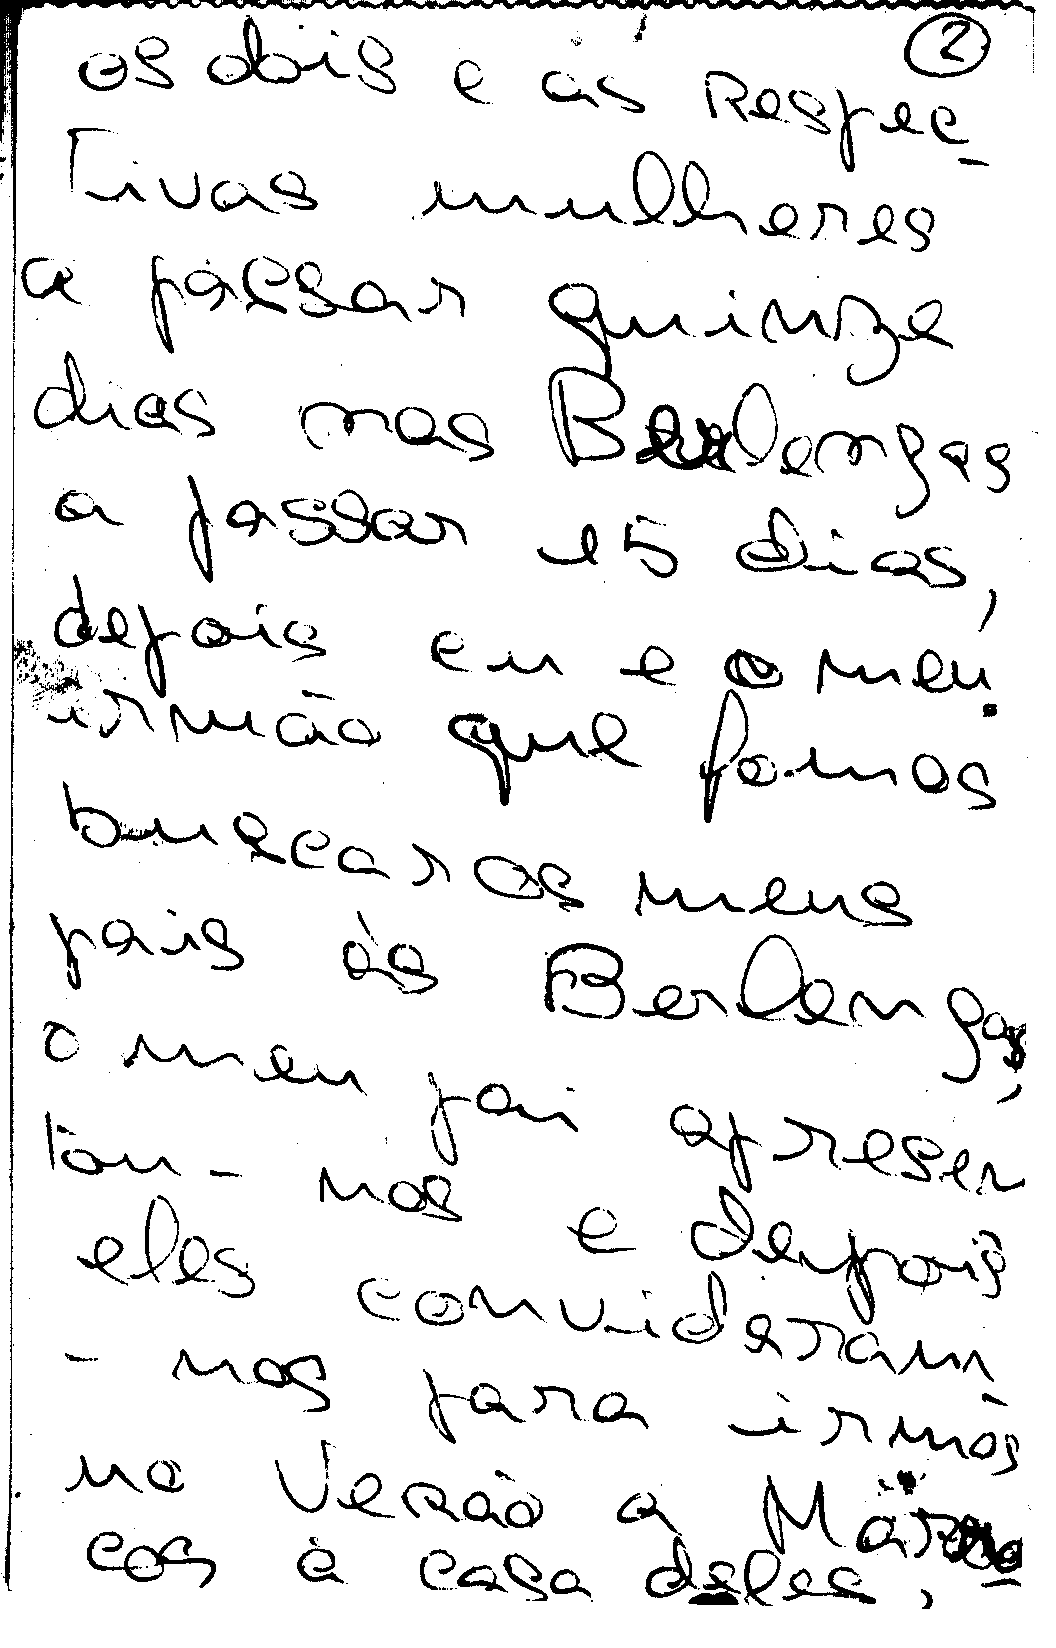 2
os dois e as respec-
tivas mulheres
a passar quinze
dias nas Berlengas
a passar 15 dias,
depois eu e o meu
irmão que fomos
buscar os meus
pais às Berlengas,
o meu pai apresen
tou-nos e depois
eles convidaram
-nos para irmos
no Verão a Marro-
cos à casa deles,